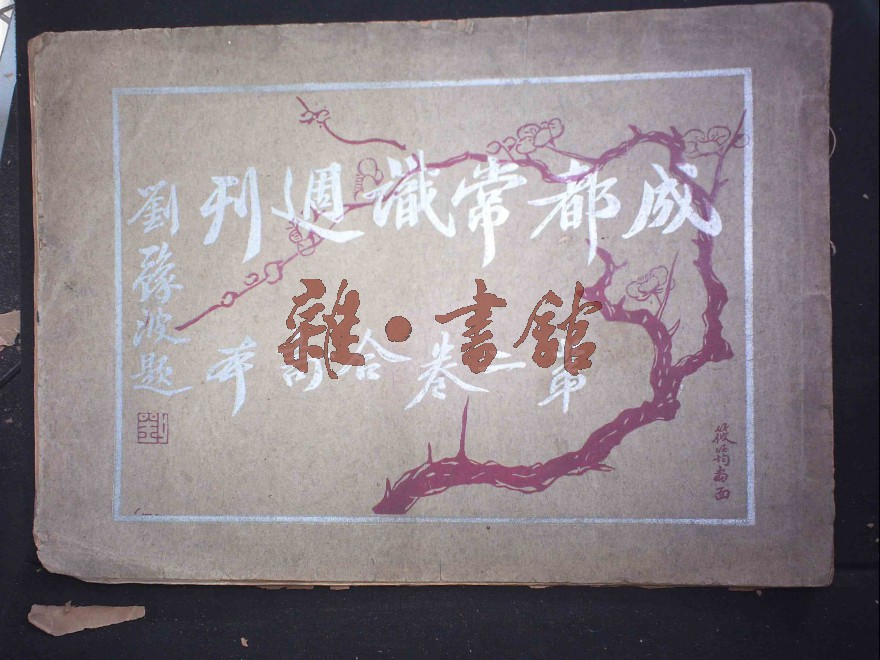 成都常識週刊
第二卷合訂本
劉豫波題
劉
雜·書館